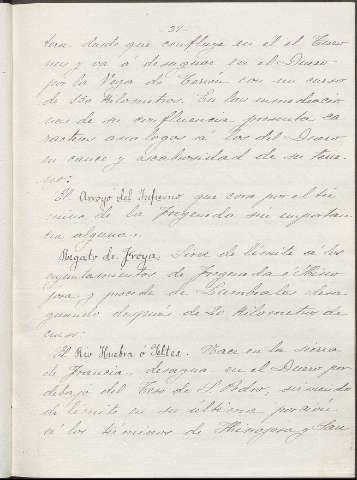 - 37 -
tera dando que confluye en él el Turo
nes y va á desaguar en el Duero
por la Vega de Terrón con un curso
de 130 kilometros. En las inmediacio
nes de su confluencia presenta ca
racteres analogos á los del Duero
en cauce y escabrosidad de su terre
no:
El Arroyo del Infierno que corre por el tér
mino de la Fregeneda sin importan
cia alguna:
Regato de Froya. Sirve de límite á los
ayuntamientos de Fregeneda é Hino
josa, y procede de Lumbrales desa
guando después de 20 kilometros de
curso:
El Rio Huebra ó Yeltes. Nace en la sierra
de Francia, desagua en el Duero por
debajo del Teso de S. Pedro, sirviendo
de límite en su última porción
á los términos de Hinojosa y Sau